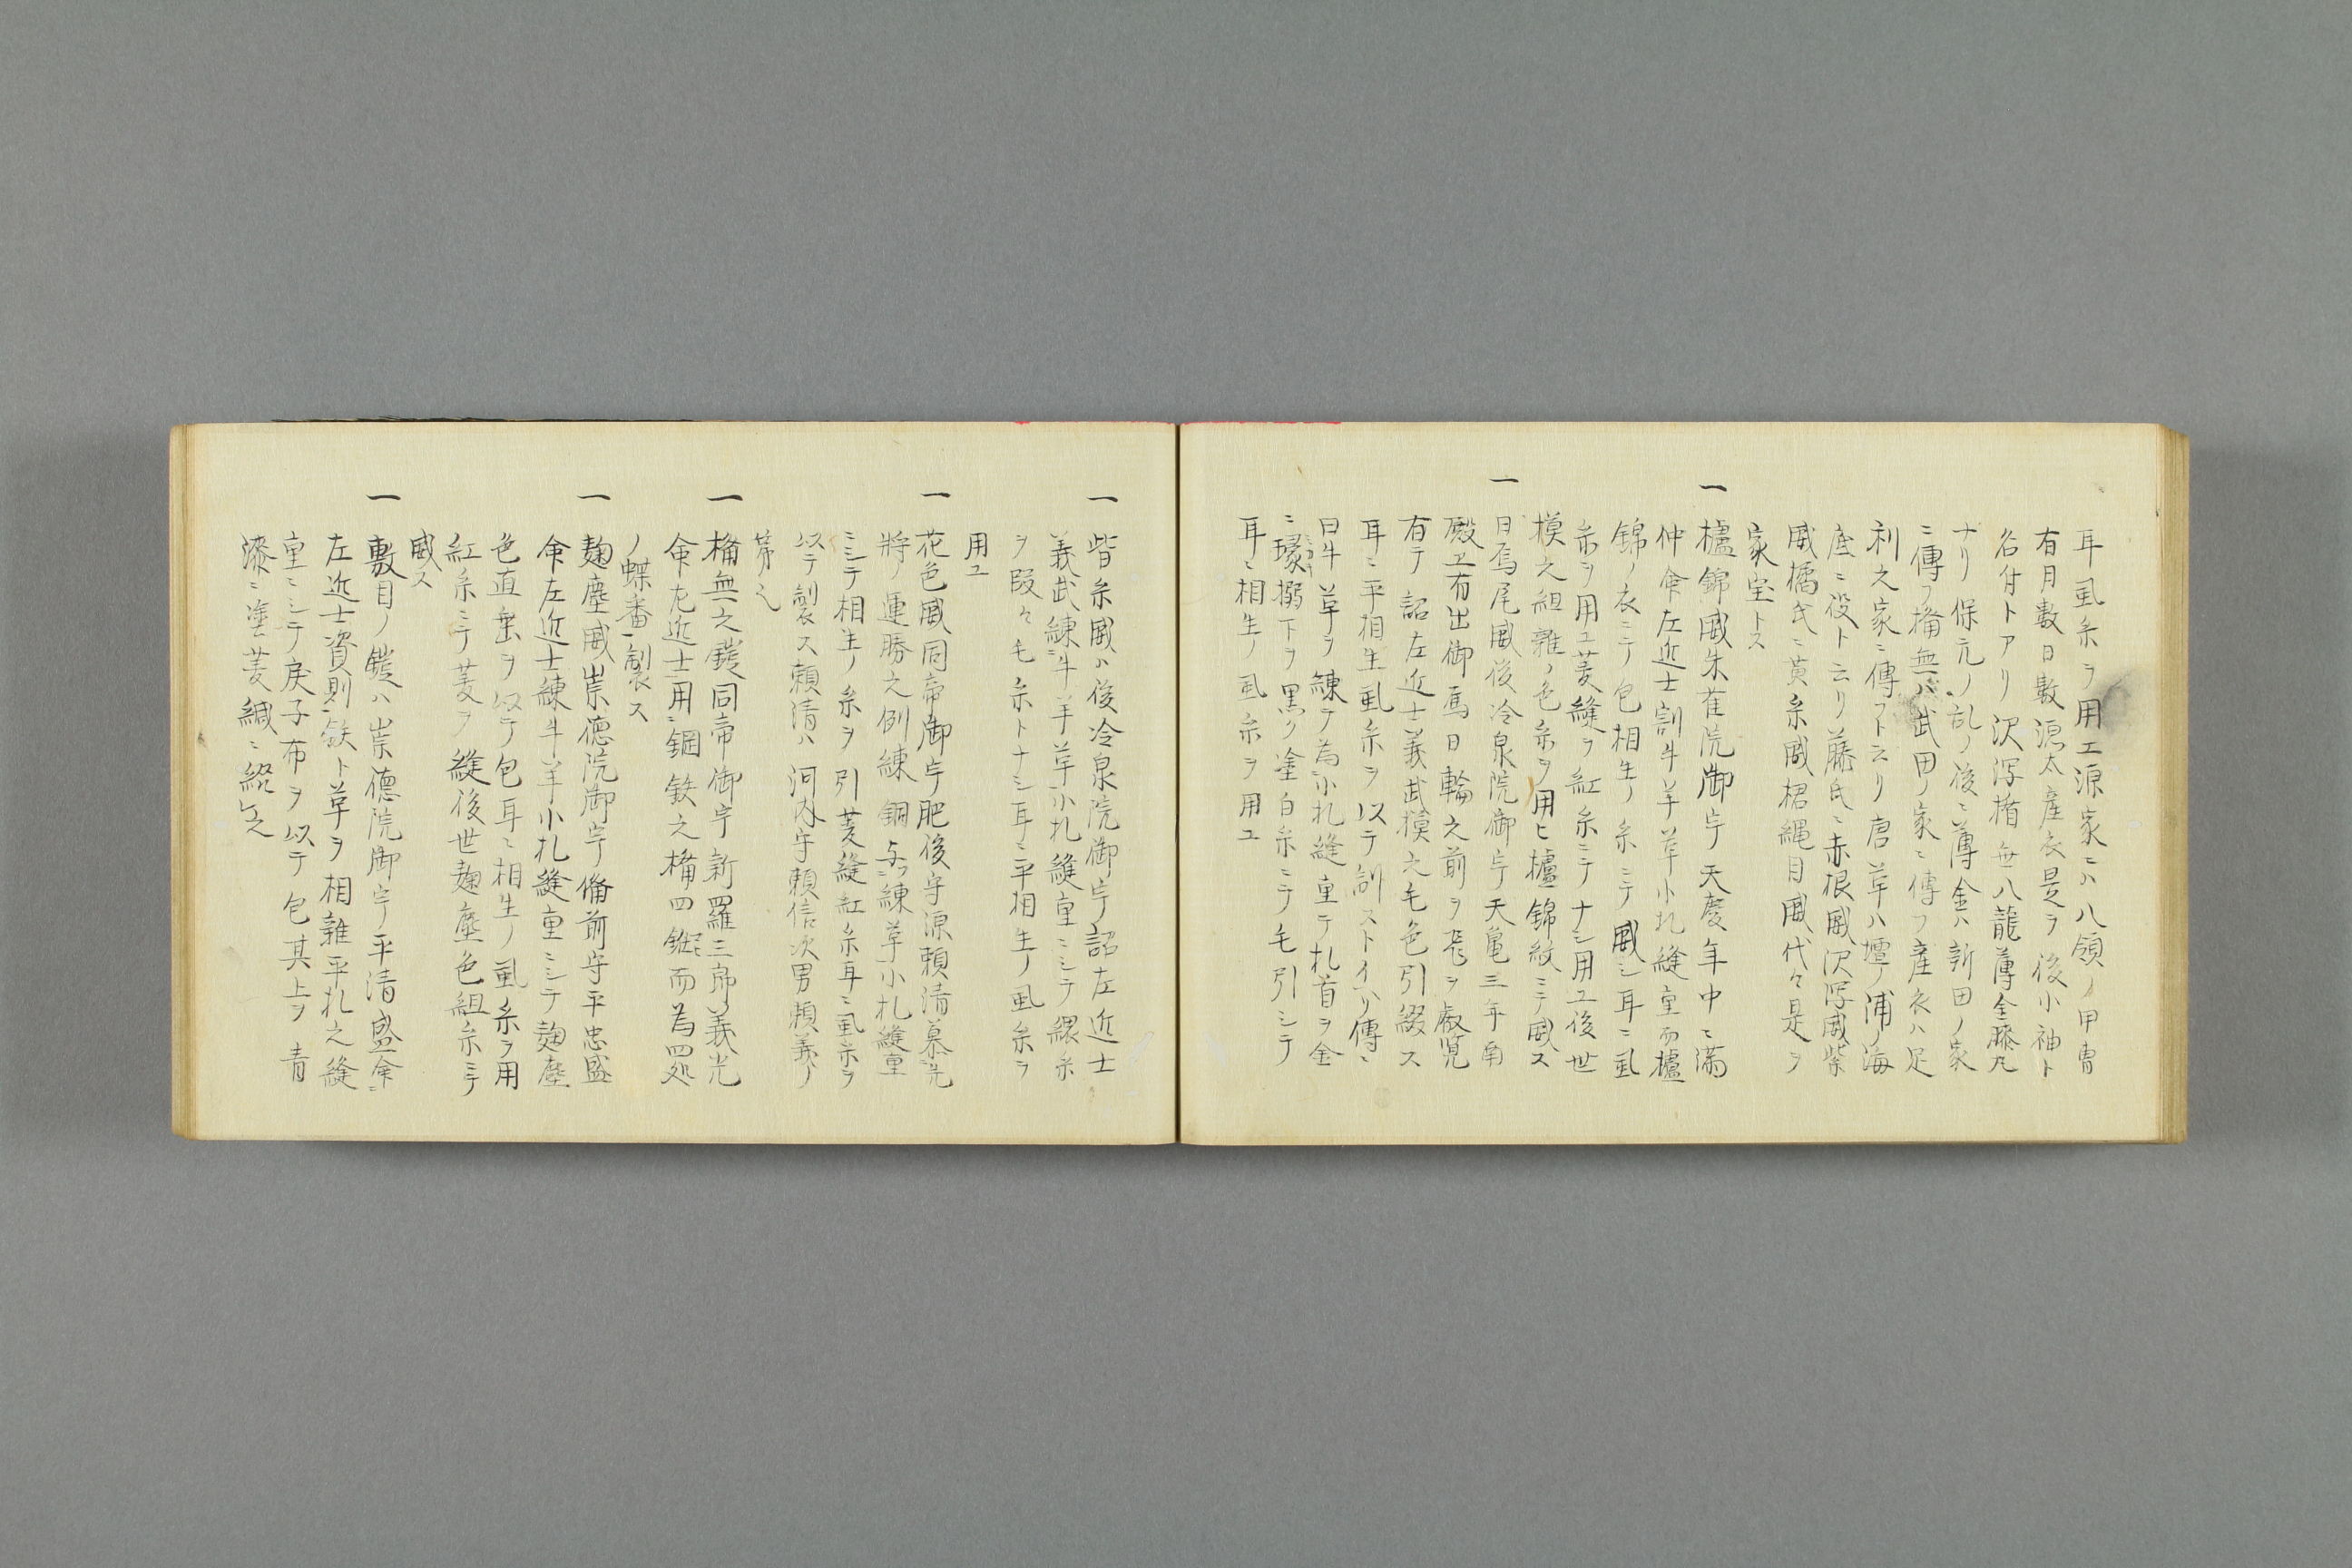 耳虱糸ヲ用エ源家ニハ八領ノ甲冑
有月數日數源太産衣是ヲ後小袖ト
名付トアリ沢瀉楯無八龍薄金膝丸
ナリ保元ノ乱ノ後ニ薄金ハ新田ノ家
ニ傳フ楯無ハ武田ノ家ニ傳フ産衣ハ足
利之家ニ傳フト云リ唐革ハ壇ノ浦ノ海
底ニ役ト云リ藤氏ニ赤根威沢瀉威紫
威橘氏ニ黄糸威桾縄目威代々是ヲ
家宝トス
一 櫨錦威朱雀院御宇天慶年中ニ満
仲命左近士訓牛羊革小札縫重而櫨
錦ノ衣ニテ包相生ノ糸ニテ威シ耳ニ虱
糸ヲ用ユ菱縫ヲ紅糸ニテナシ用ユ後世
模之組雜ノ色糸ヲ用ヒ櫨錦紋ニテ威ス
一 日烏尾威後冷泉院御宇天亀三年南
殿ヱ有出御烏日輪之前ヲ飛ヲ叡覧
有テ詔左近士義武摸之毛色引綴ス
耳ニ平相生虱糸ヲ以テ訓ストイヘリ傳ニ
曰牛革ヲ練テ為小札縫重テ札首ヲ金
ニ 下ヲ黒ク塗白糸ニテ毛引シテ
耳ニ相生ノ虱糸ヲ用ユ
一 皆糸威ハ後冷泉院御宇詔左近士
義武練牛羊革小札縫重ニシテ 糸
ヲ段々毛糸トナシ耳ニ平相生ノ虱糸ヲ
用ユ
一 花色威同帝御宇肥後守源頼清慕先
将ノ運勝之例練銅与練革小札縫重
ニシテ相生ノ糸ヲ引菱縫紅糸耳ニ虱糸ヲ
以テ製ス頼清ハ河内守頼信次男頼義ノ
弟也
一 楯無之鎧同帝御宇新羅三郎義光
命左近士用鋼鉄之楯四 而為四処
ノ蝶番製ス
一 麹塵威崇德院御宇備前守平忠盛
命左近士練牛羊小札縫重ニシテ麹塵
色直垂ヲ以テ包耳ニ相生ノ虱糸ヲ用
紅糸ニテ菱ヲ縫後世麹塵色組糸ニテ
威ス
一 敷目ノ鎧ハ崇德院御宇平清盛命
左近士資則鉄ト革ヲ相雜平札之縫
重ニシテ戻子布ヲ以テ包其上ヲ青
漆ニ塗菱縅ニ 之